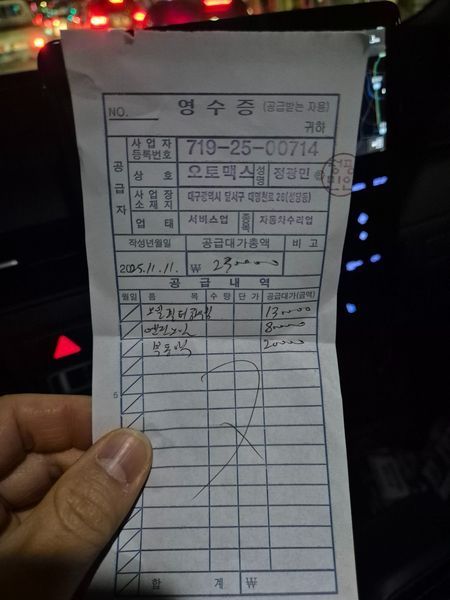 NO. 영수증 (공급받는 자용)
귀하
공급자
사업자등록번호 719-25-00714
상호 오토맥스 성명 정광민
사업장소재지 대구광역시 달서구 대명천로 26(성당동)
업태 서비스업 종목 자동차수리업
작성년월일 공급대가총액 비고
2025.11.11. ₩ 230000
공급내역
월일 품목 수량 단가 공급대가(금액)
130000
엔진오일 80000
부동액 20000
5
합계 ₩